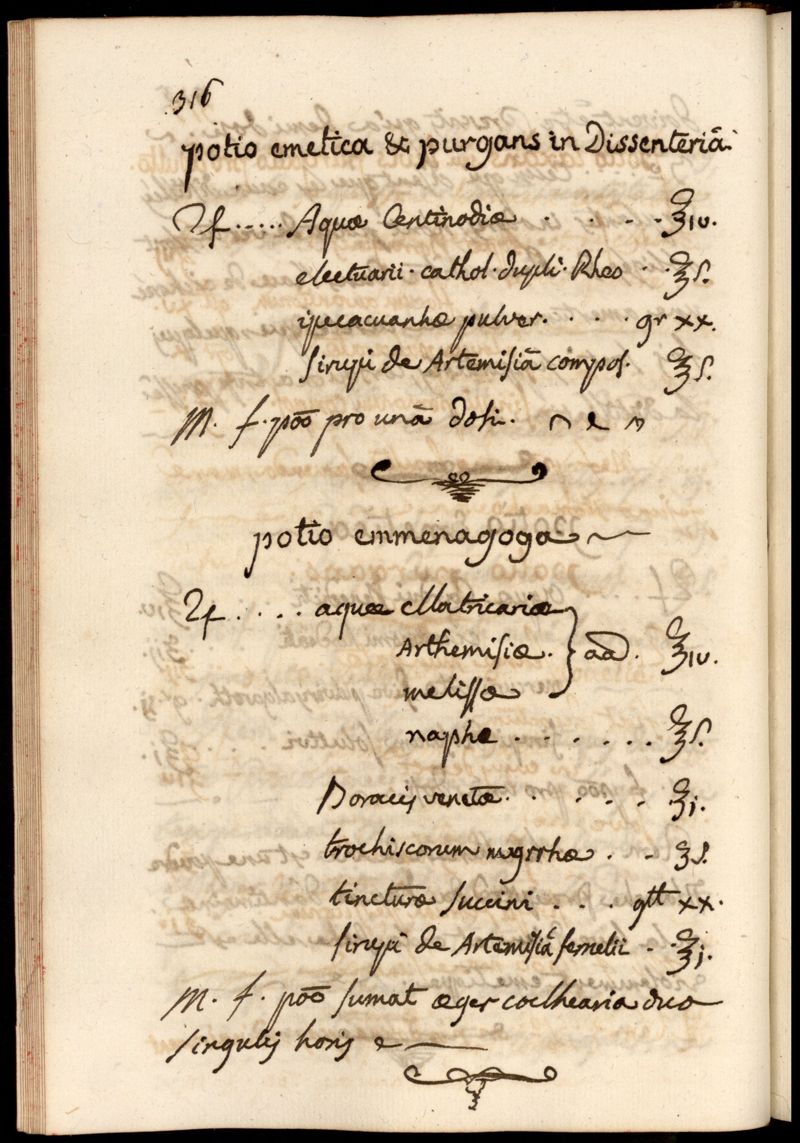 316
potio emetica & purgans in Dissenteriâ.
♃ ..... Aquæ Centinodiæ . . . . ℥iv.
electuarii . cathol . dupli . Rheo . . ℥s.
ipecacuanhæ pulver. . . . . gr xx.
sirupi de Artemisiâ compos. ℥s.
M. f. poõ pro unâ dosi.
potio emmenagoga
♃ .... aquæ Matricariæ
Arthemisiæ . } aã . ℥iv.
melissæ
naphæ . . . . . . ℥s.
Boracis venetæ . . . . . ʒi.
trochiscorum myrrhæ . . ʒs.
tincturæ succini . . . gtt xx.
sirupi de Artemisiâ fernelii . . ℥i.
M. f. poõ sumat æger coclhearia duo
singulis horis